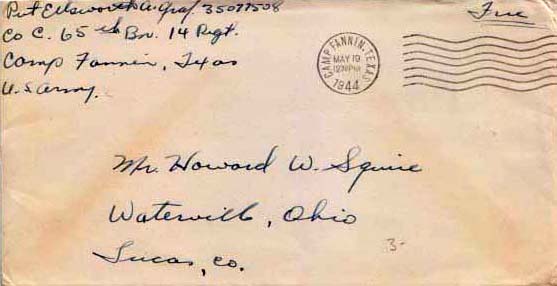 Pvt Ellsworth A. Graf. 35077508
Free
Co C. 65th Bn. 14 Rgt.
Camp Fannin, Texas
U.S. Army.
CAMP FANNIN, TEXAS
MAY 19
12 30 PM
1944
Mr. Howard W. Squire
Waterville, Ohio
Lucas, Co.
3-